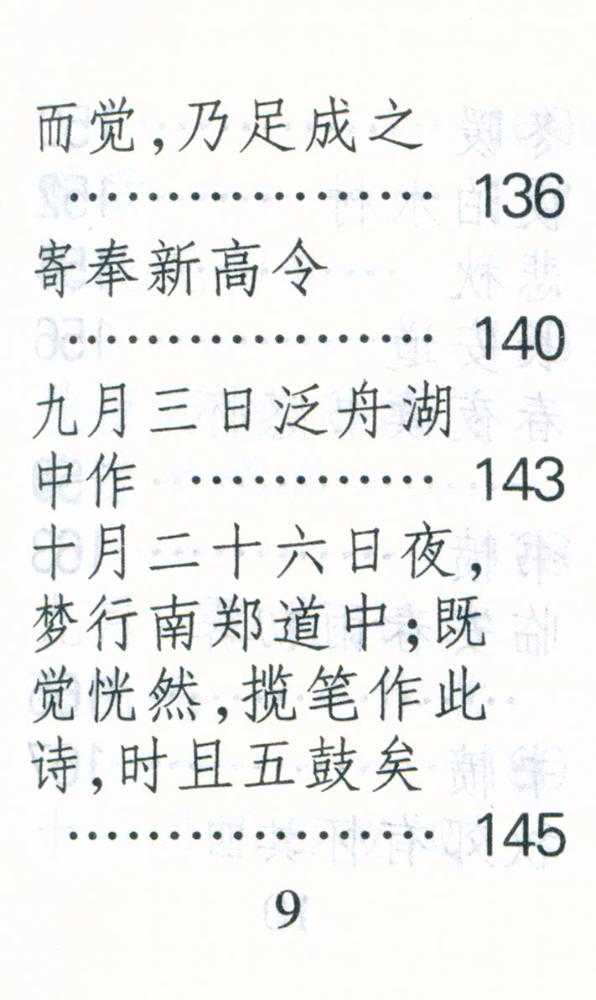 而觉,乃足成之
……………… 136
寄奉新高令
……………… 140
九月三日泛舟湖
中作 ………… 143
十月二十六日夜,
梦行南郑道中;既
觉恍然,揽笔作此
诗,时且五鼓矣
……………… 145
9